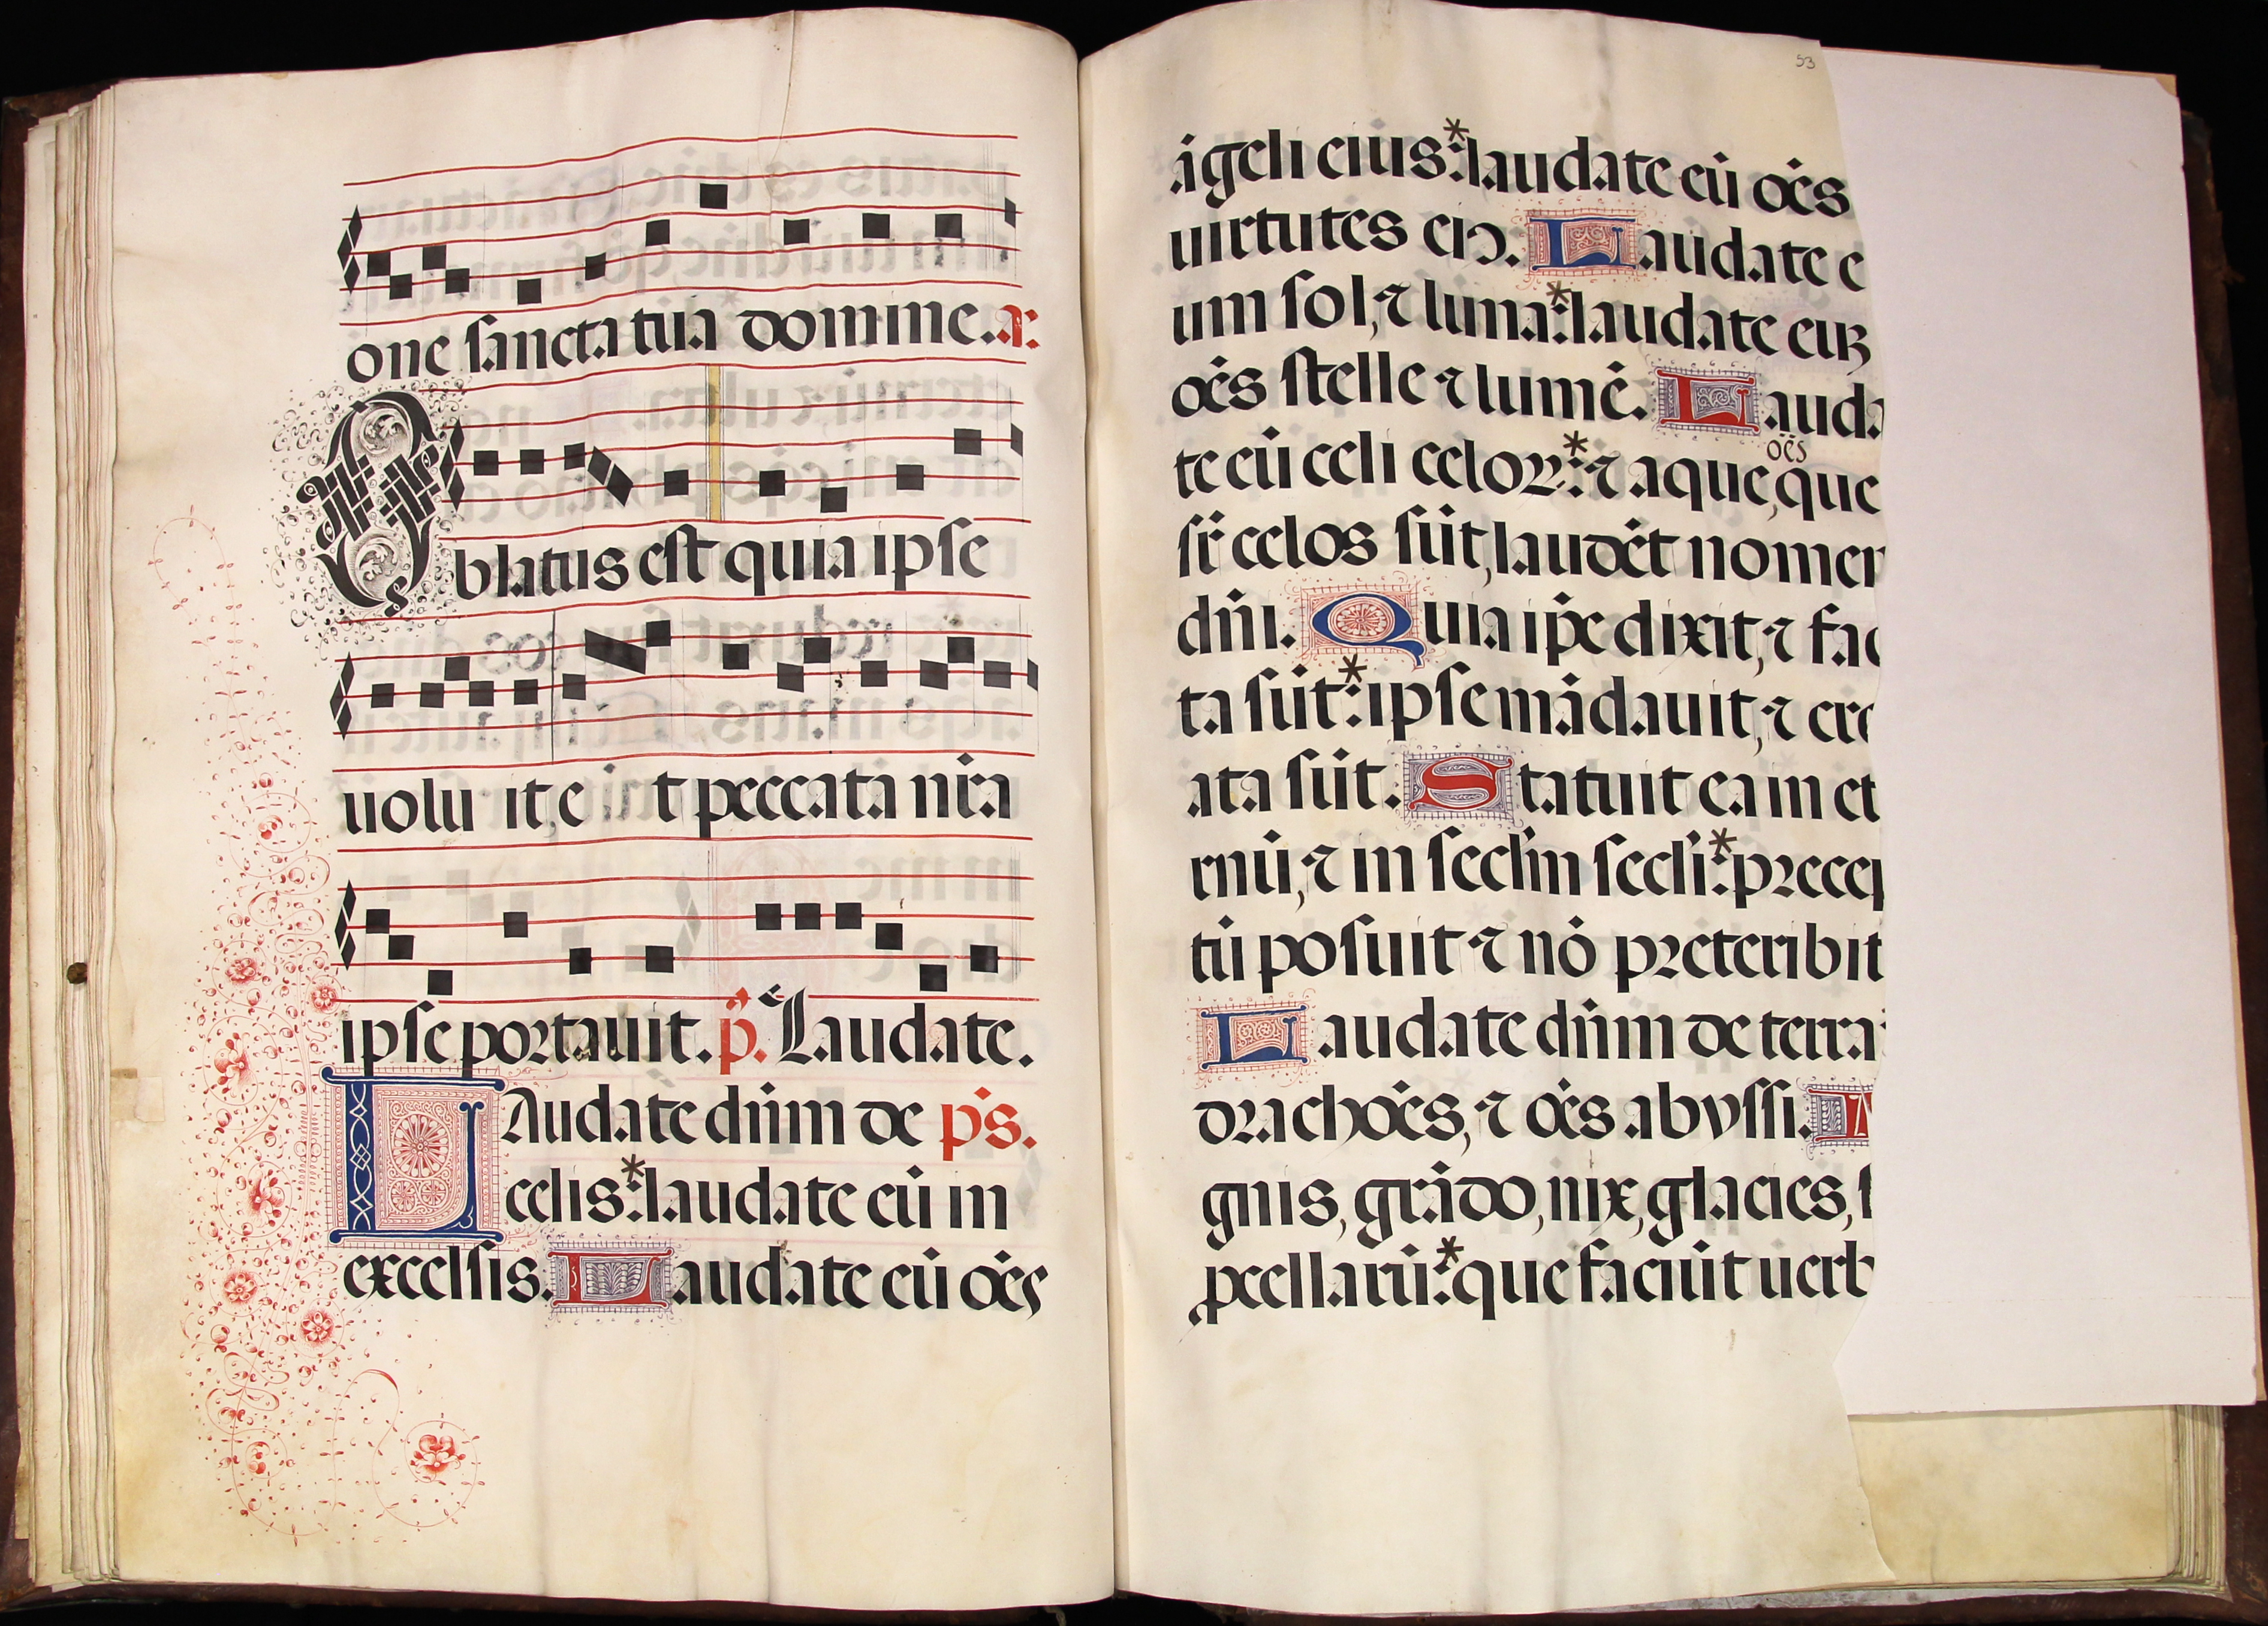 one sancta tua domine. a:
Oblatus est quia ipse
uolu it, e t peccata nr̄a
ipse portauit. p̄. Laudate.
LAudate dn̄m de ps̄.
celis: * laudate eū in
excelsis. Laudate eū oēs
53
āgeli eius: * laudate eū oēs
uirtutes eiꝰ. Laudate e
um sol, ⁊ luna: * laudate euꝫ
oēs stelle ⁊ lumē. Lauda
te eū celi celoꝝ: * ⁊ aque, que
oēs
sr̄ celos sūt, laudēt nomen
dn̄i. Quia ip̄e dixit, ⁊ fac
ta sūt: * ipse mādauit, ⁊ cre
ata sūt. Statuit ea in et
rnū, ⁊ in secl̄m secl̄i: * precep
tū posuit ⁊ nō preteribit
Laudate dn̄m de terra:
drachoēs, ⁊ oēs abyssi. I
gnis, grādo, nix, glacies, s
pcellarū: * que faciūt uerb